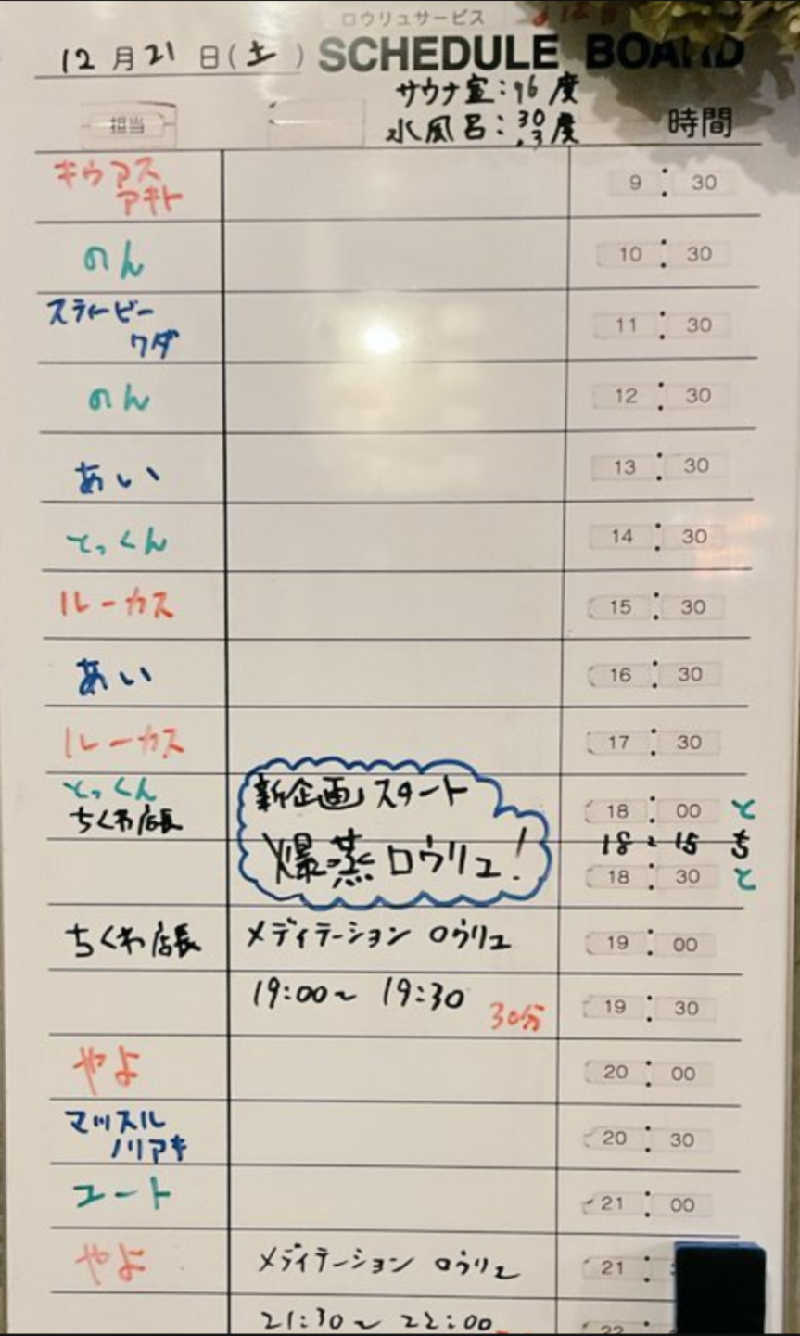 ロウリュサービス
12月21日(土) SCHEDULE BOARD
サウナ室:96度
担当 水風呂:30.3度 時間
キウアス
アキト 9:30
のん 10:30
スティービー
ワダ 11:30
のん 12:30
あい 13:30
とっくん 14:30
ルーカス 15:30
あい 16:30
ルーカス 17:30
とっくん
ちくわ店長 新企画スタート 18:00 と
爆蒸ロウリュ! 18:15 ち
18:30 と
ちくわ店長 メディテーション ロウリュ 19:00
19:00~ 19:30 30分 19:30
やよ 20:00
マッスル
ノリアキ 20:30
ユート 21:00
やよ メディテーション ロウリュ 21:
21:30~ 22:00 22